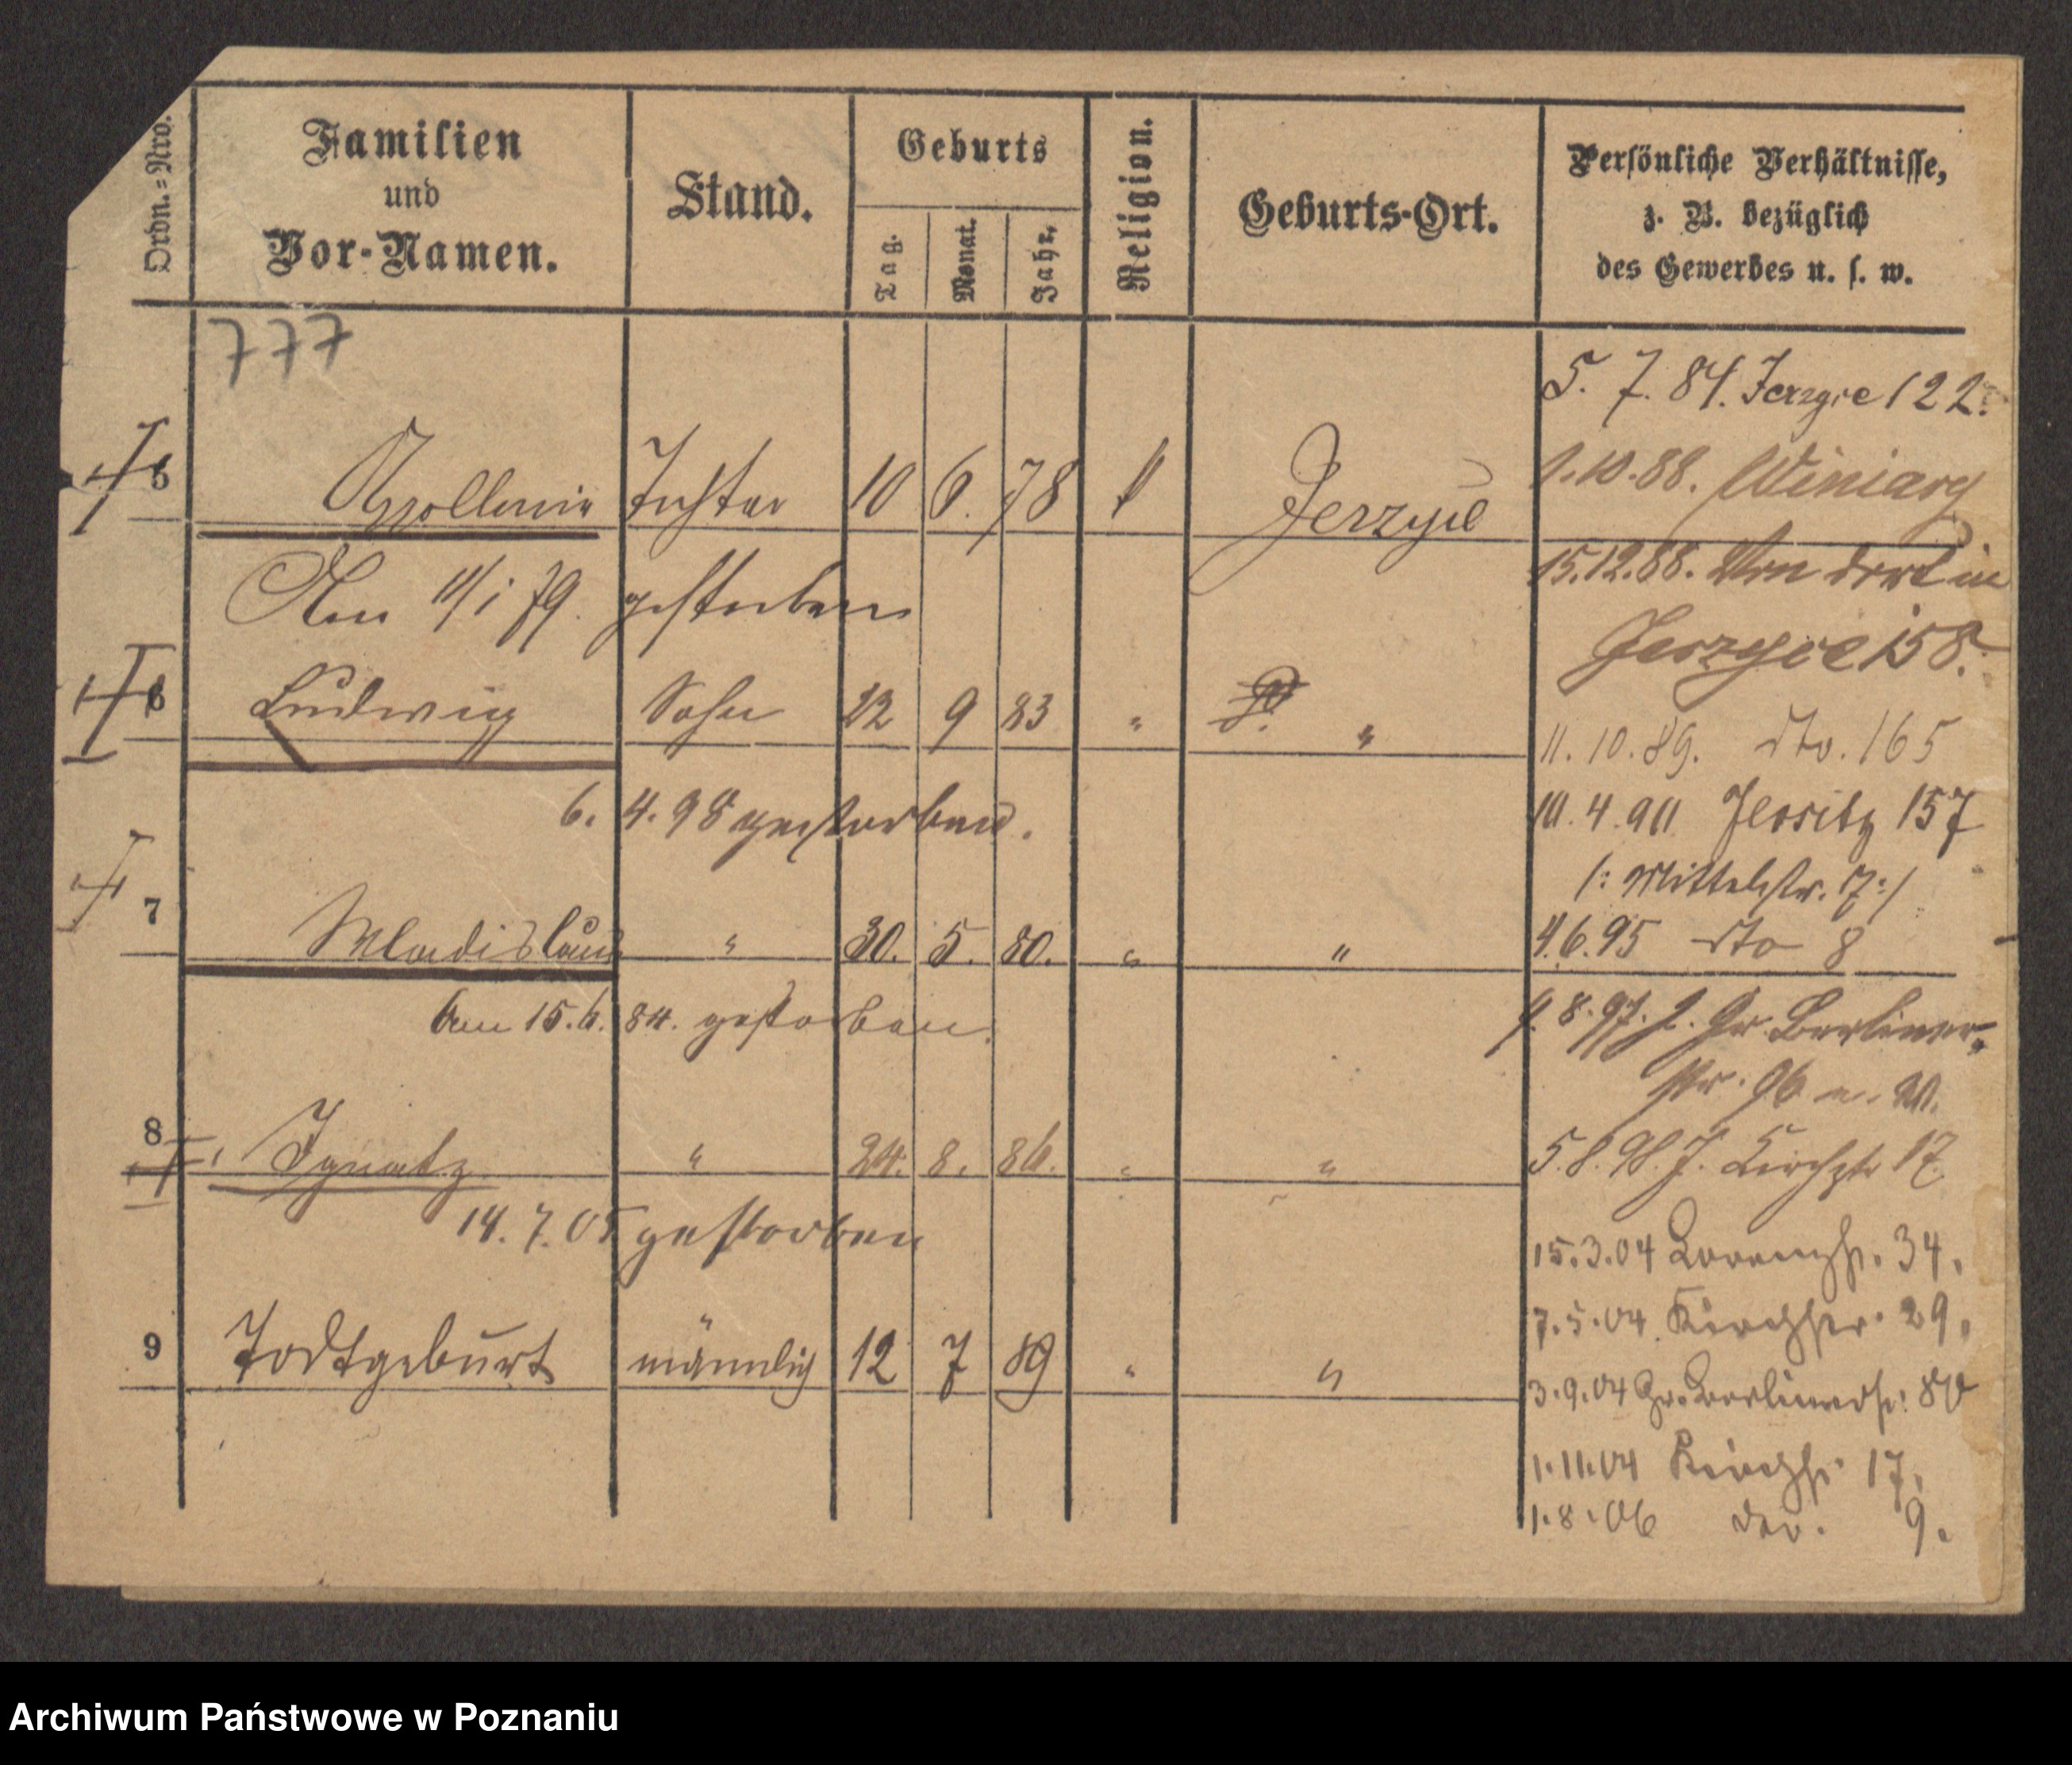 Ordn.=Nro.
Familien
und
Vor-Namen.
Stand.
Geburts
Tag.
Monat.
Jahr.
Religion.
Geburts-Ort.
Persönliche Verhältnisse,
z. B. bezüglich
des Gewerbes u. s. w.
777
5. 7. 84. Jerzyce 122.
Apollonia Tochter 10 6. 78 Jerzyce
1.10.88. Winiary
Am 11/1 79. gestorben
15.12.88. Von dort in
Jerzyce 158.
6 Ludwig Sohn 22 9 83 " "
11. 10. 89. dto. 165
6. 4. 98 gestorben.
10. 4. 90 Jersitz 157
/: Mittelstr. 17 :/
7 Wladislaus " 30. 5. 80. " "
4.6.95 dto 8
Am 15. 6. 84. gestorben.
8. 97. J. Gr. Berliner-
str. 96
8 Ignatz " 24. 8. 86. " "
5. 8. 98. J. Kirchstr 17.
14. 7. 05 gestorben
15.3.04 34.
7.5.04. Kirchstr. 29.
9 Todtgeburt männlich 12 7 89 " "
3.9.04 Gr. Berlinerstr. 80
1.11.04 Kirchstr. 17.
1.8.06 do. 9.
Archiwum Państwowe w Poznaniu